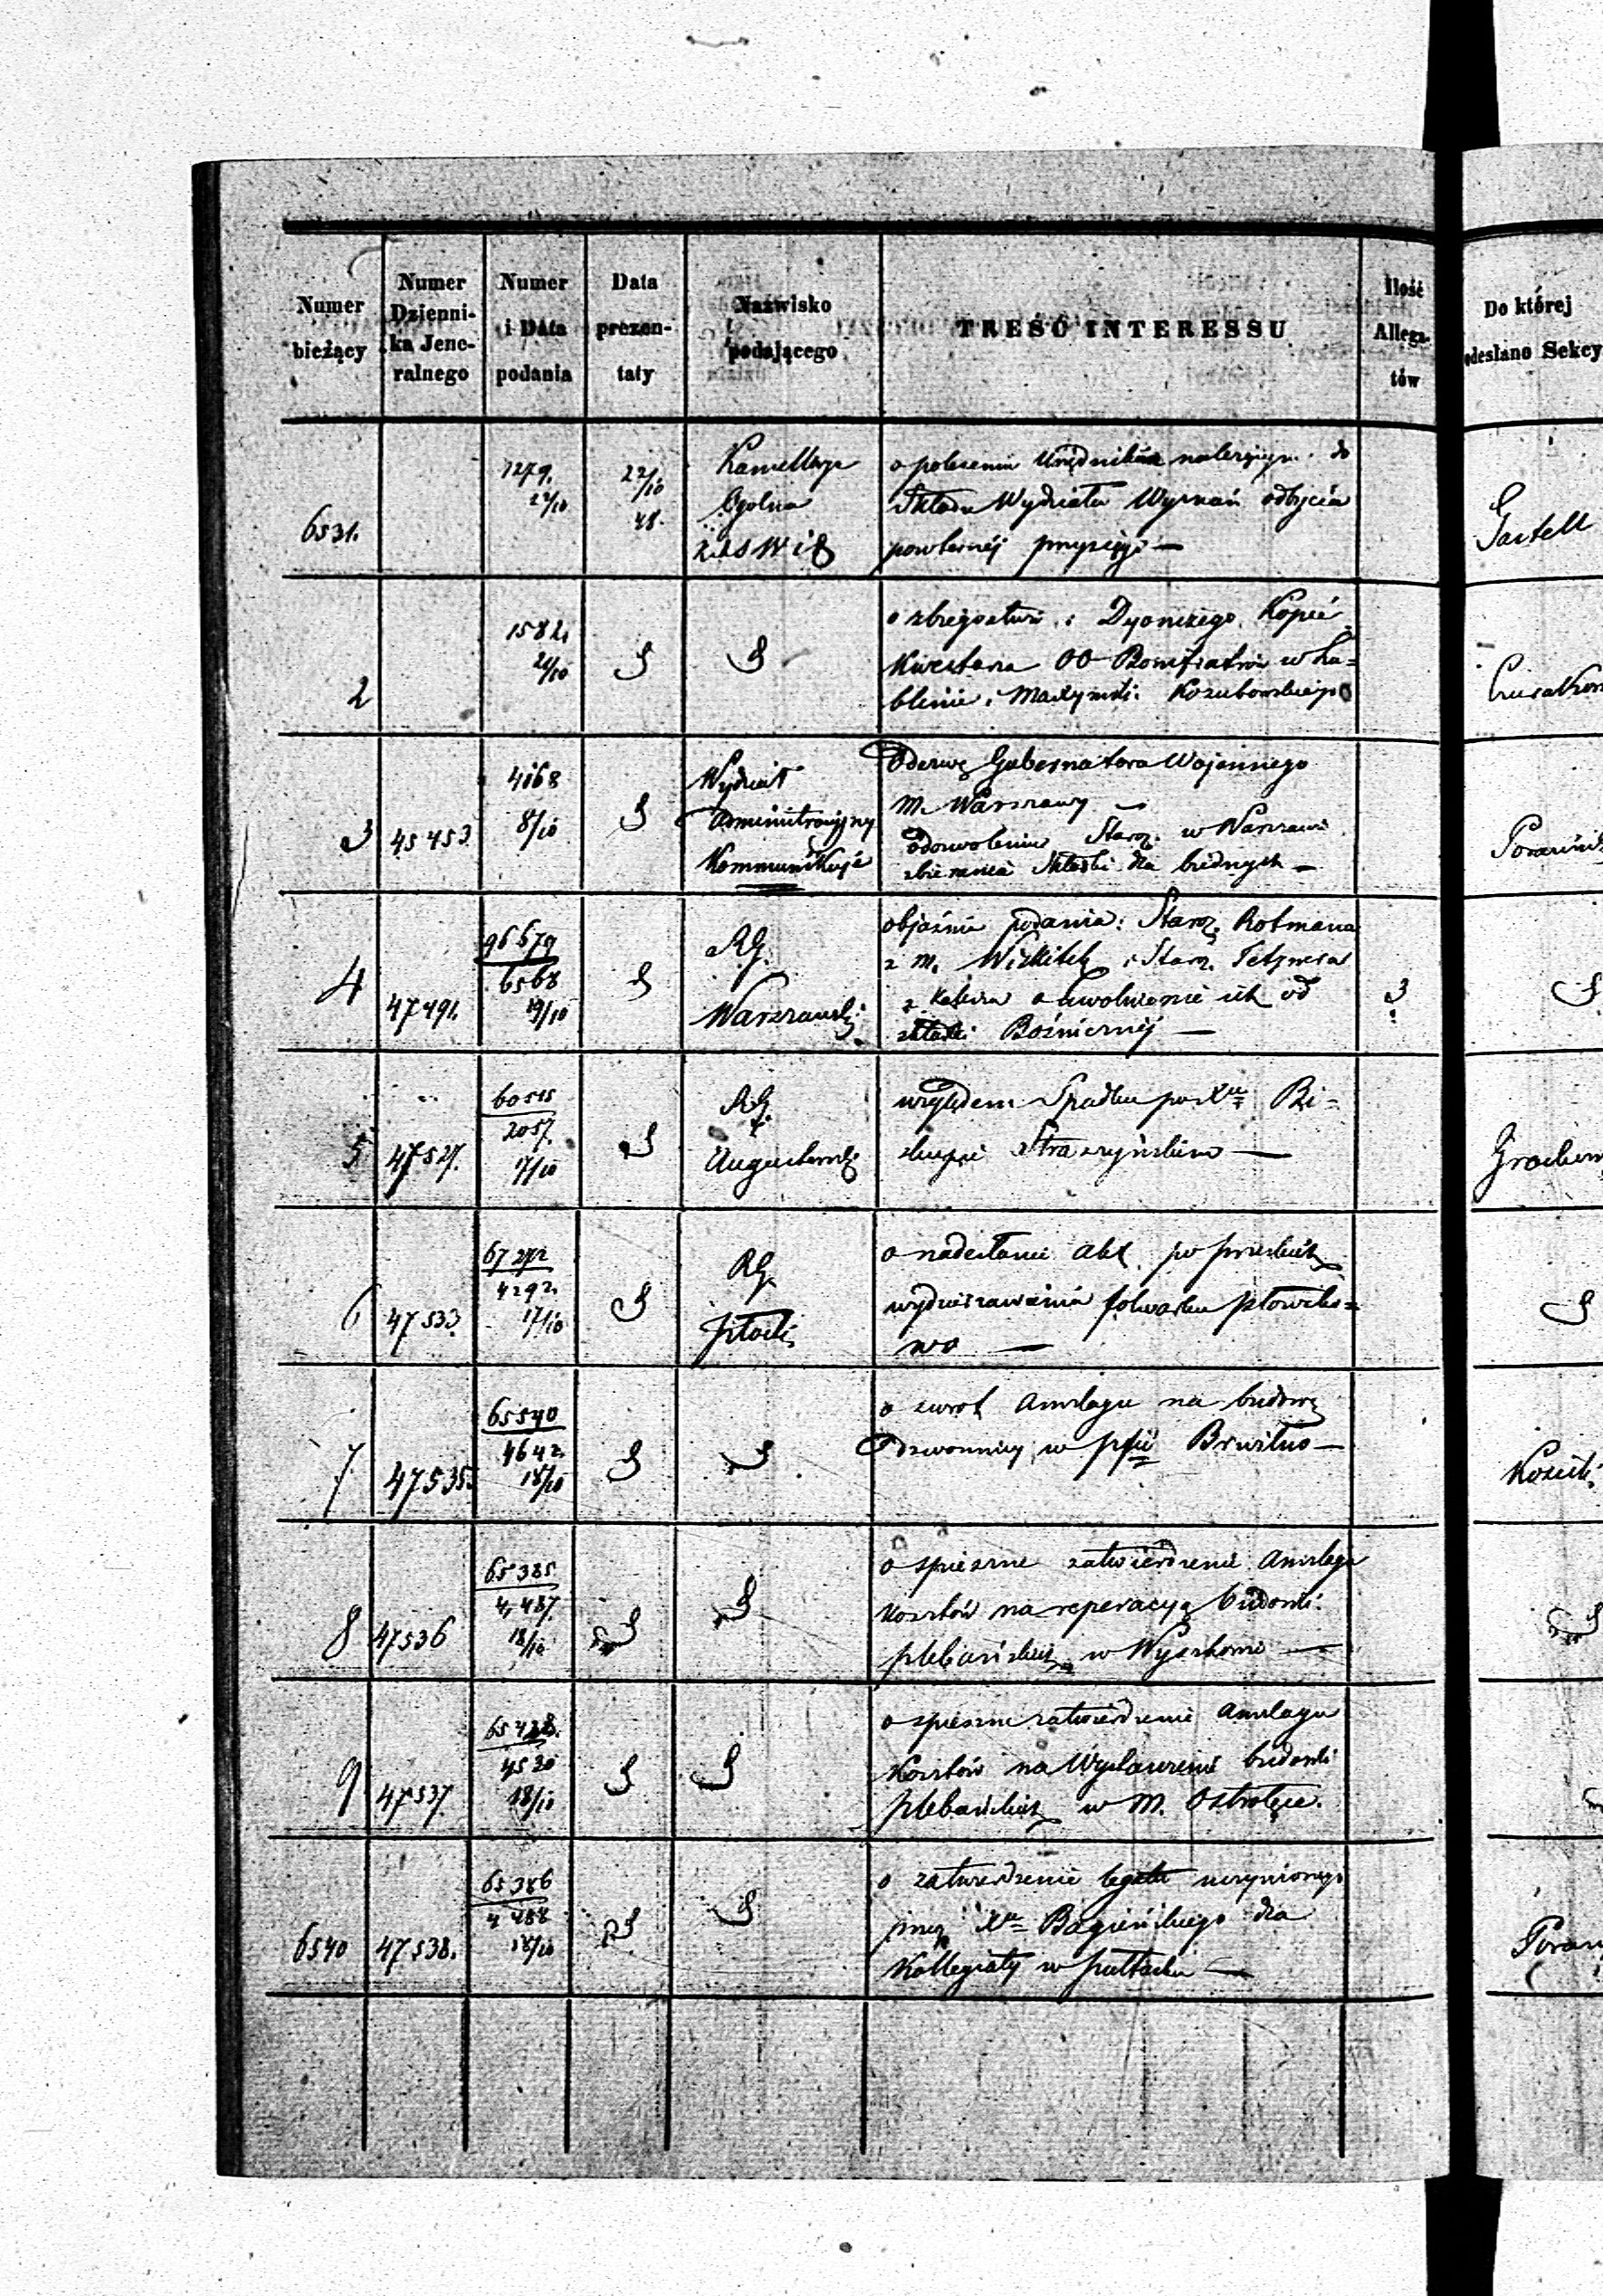 Numer bieżący
Numer Dzienni-ka Jene-ralnego
Numer i Data podania
Data prezen-taty
Nazwisko podającego
TREŚĆ INTERESSU
Ilość Allega-tów
Do której odesłano Sekcy
6531.
1279.
22/10
22/10
48.
Ogolna
K.R.S.W i D
o polecenie Urzędnikom do
Składu Wydziału Wyznań odbycia
powtórnéj przysięgi —
2
1582.
21/10
Dyonizego Kopeć
Kwestarza OO Bonifratrów w Lu=
blinie
3
45453
4168
8/10
Wydział
Administracyjny
Kommunikuje
Odezwę Gubernatora Wojennego
M. Warszawy —
Staroz. w Warszawie
zbierania Składki dla biednych —
4
47491.
96679
6568
19/10
RG.
Warszawski
objaśnia podania: Staroz. Rotmana
z m. Wiskitek i Staroz.
o uwolnienie ich od
składki Bożniczéj —
3
5
47527.
60515
2057.
17/10
RG.
Augustowski
względem Spadku po Xu Bi=
skupie Straszyńskim —
6
47533.
67272
4292.
17/10
RG.
Płocki
o nadesłanie akt po
wydzierzawienia folwarku
wo —
7
47535.
65540
4642.
18/10
o zwrot Anszlagu na budowę
Dzwonnicy w pfii Brwilno —
Kozicki
8
47536
65385
4,487.
18/10
o spieszne zatwierdzenie Anszlagu
kosztów na reperacyą budowli
plebańskich w Wyszkowie —
9
47537
65428.
4530
18/10
o spieszne zatwierdzenie Anszlagu
Kosztów na Wystawienie budowli
plebańskich w m. Ostrołęce.
6540
47538.
65386
4488
18/10
o zatwierdzenie legatu uczynionego
przez Xa Bagieńskiego dla
Kollegiaty w Pułtusku —